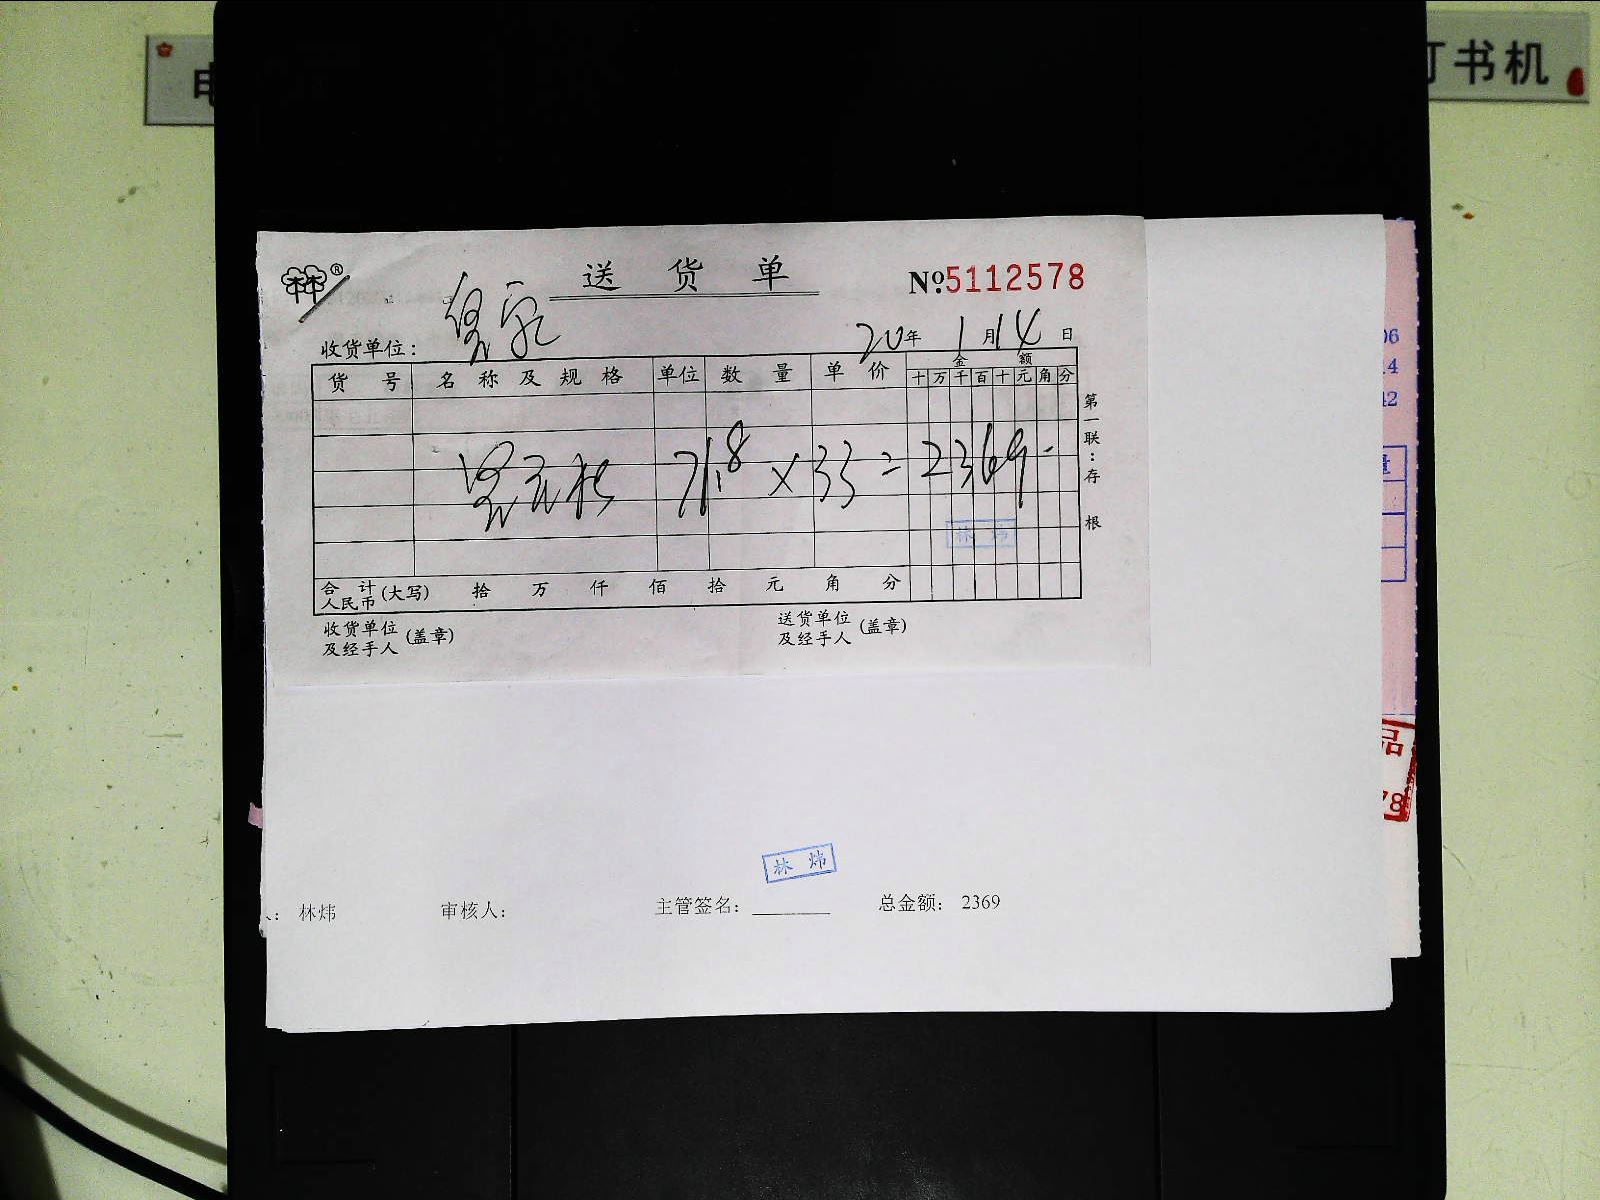 订书机
送货单
№5112578
收货单位:
20年1月14日
货号 名称及规格 单位 数量 单价 金额
十万千百十元角分
71.8 × 33 = 2369-
林炜
合计 人民币 (大写) 拾 万 仟 佰 拾 元 角 分
收货单位 及经手人 (盖章)
送货单位 及经手人 (盖章)
第一联:存根
06
14
42
品
78
林炜
林炜 审核人: 主管签名: 总金额: 2369